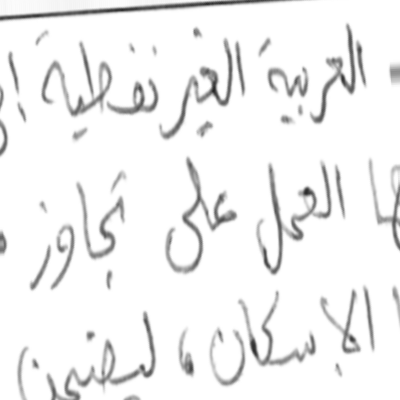 العربية الغير نفطية
العمل على تجاوز
الإسكان، ليضمن